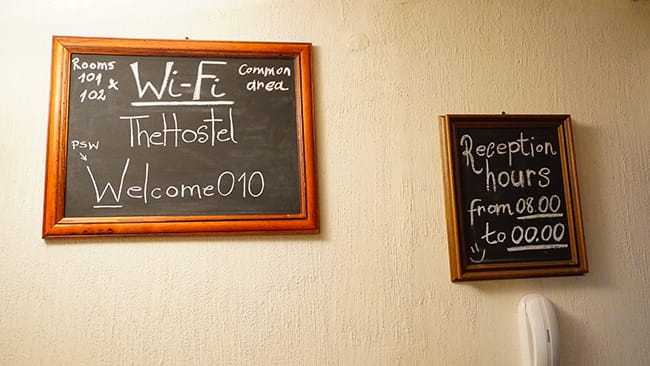 Rooms
101 &
102
Wi-Fi
Common
area
TheHostel
PSW
Welcome010
Reception
hours
from 08.00
to 00.00